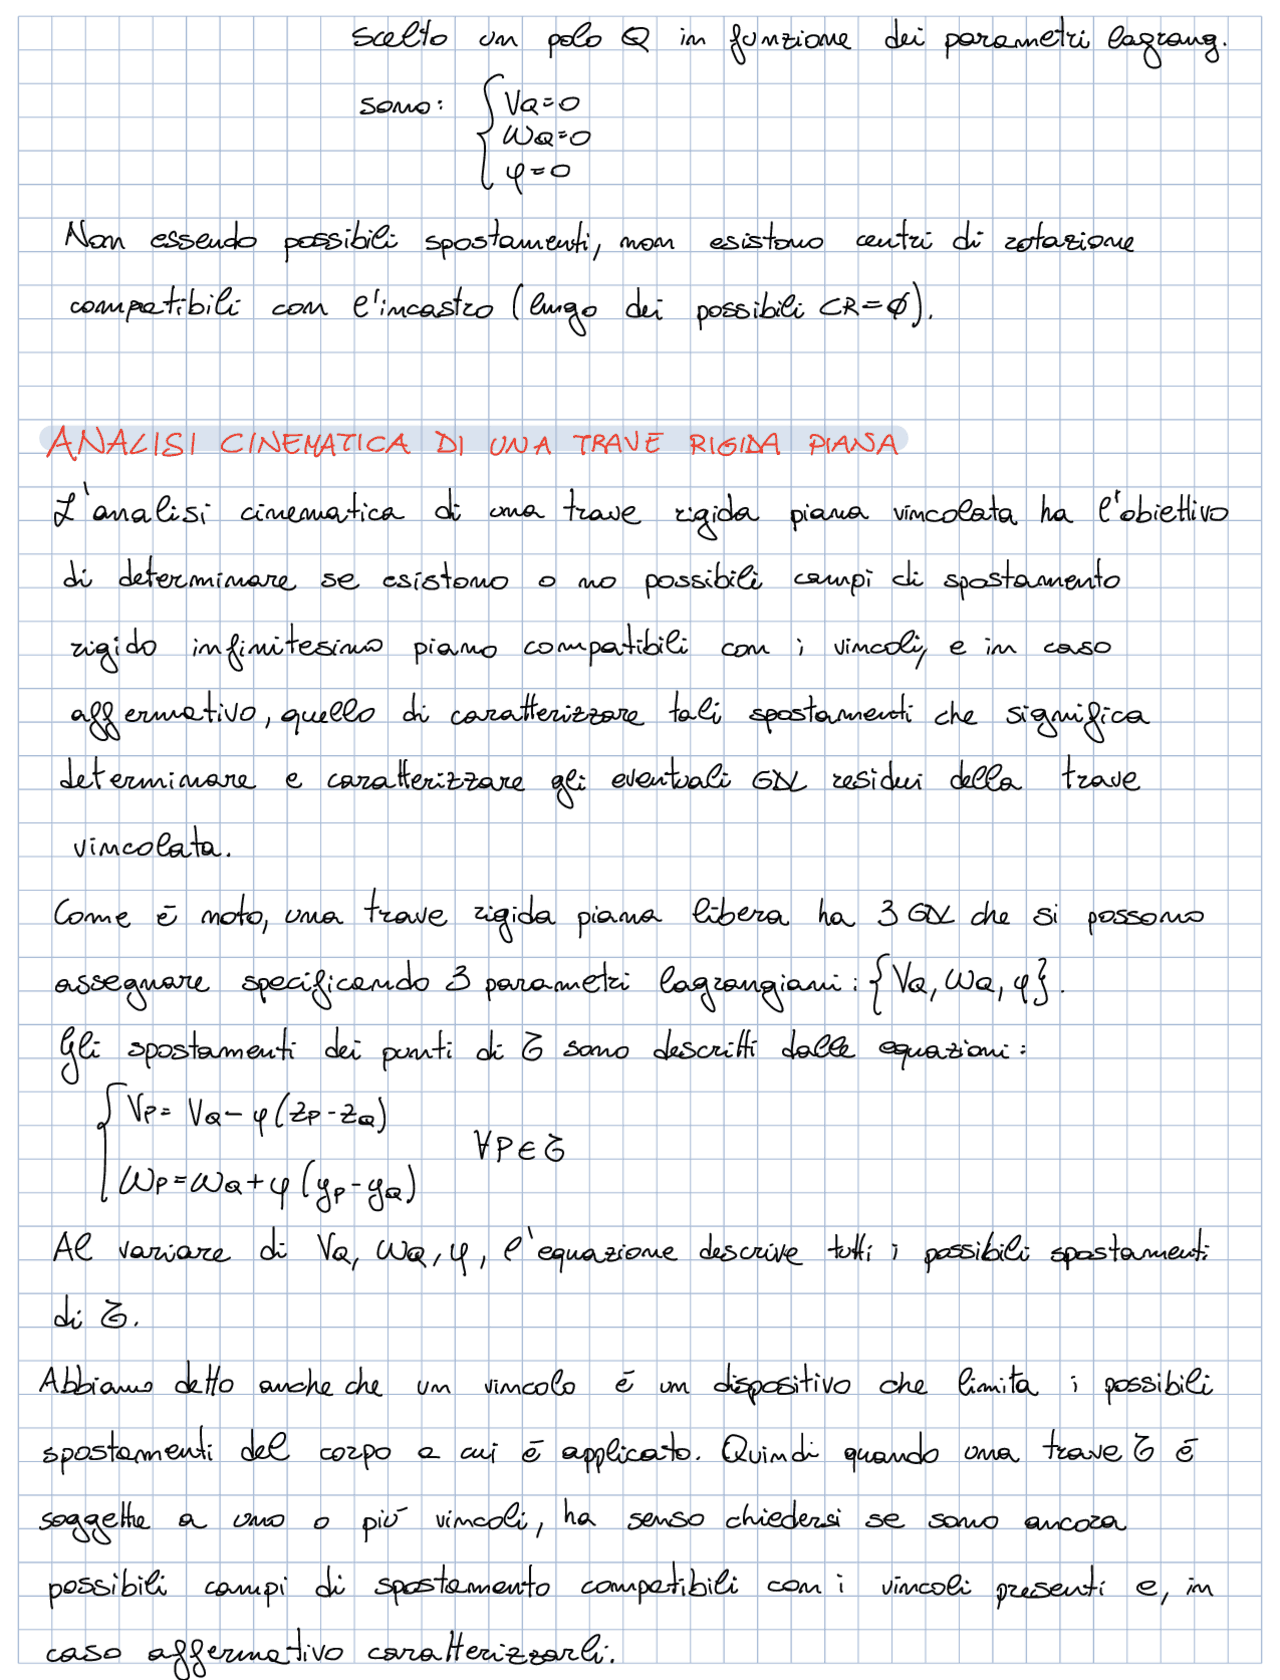 scelto un polo Q in funzione dei parametri lagrang.
sono: { VQ=0
WQ=0
φ=0
Non essendo possibili spostamenti, non esistono centri di rotazione
compatibili con l'incastro (luogo dei possibili CR=∅).
ANALISI CINEMATICA DI UNA TRAVE RIGIDA PIANA
L'analisi cinematica di una trave rigida piana vincolata ha l'obiettivo
di determinare se esistono o no possibili campi di spostamento
rigido infinitesimo piano compatibili con i vincoli, e in caso
affermativo, quello di caratterizzare tali spostamenti che significa
determinare e caratterizzare gli eventuali GDL residui della trave
vincolata.
Come è noto, una trave rigida piana libera ha 3 GDL che si possono
assegnare specificando 3 parametri lagrangiani: {VQ, WQ, φ}.
Gli spostamenti dei punti di τ sono descritti dalle equazioni:
{ VP= VQ- φ(zP-zQ)
∀P∈τ
WP=WQ+φ(yP-yQ)
Al variare di VQ, WQ, φ, l'equazione descrive tutti i possibili spostamenti
di τ.
Abbiamo detto anche che un vincolo è un dispositivo che limita i possibili
spostamenti del corpo a cui è applicato. Quindi quando una trave τ è
soggetta a uno o più vincoli, ha senso chiedersi se sono ancora
possibili campi di spostamento compatibili con i vincoli presenti e, in
caso affermativo caratterizzarli.